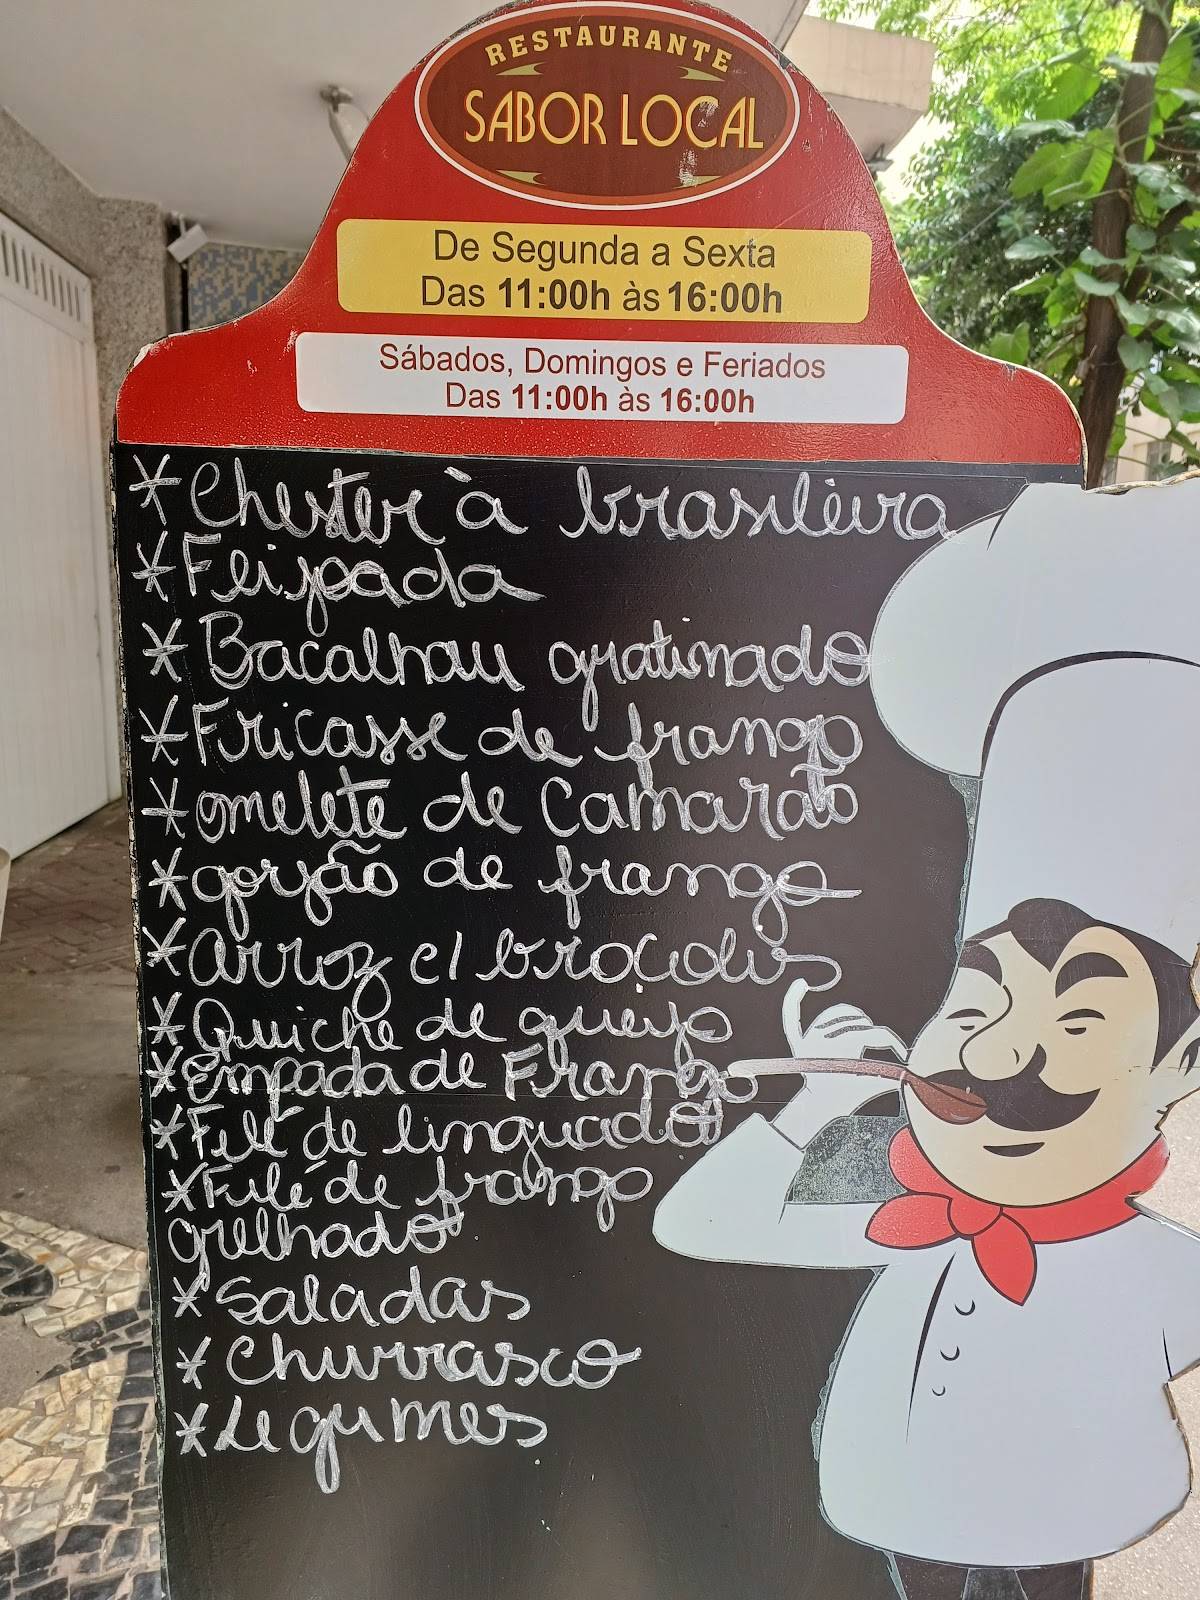 RESTAURANTE
SABOR LOCAL
De Segunda a Sexta
Das 11:00h às 16:00h
Sábados, Domingos e Feriados
Das 11:00h às 16:00h
* Chester à brasileira
* Feijoada
* Bacalhau gratinado
* Fricasse de frango
* omelete de Camarão
* gorjão de frango
* arroz c/ broçolis
* Quiche de queijo
* Empada de Frango
* Filé de linguado
* Filé de frango
grelhado
* Saladas
* Churrasco
* Legumes